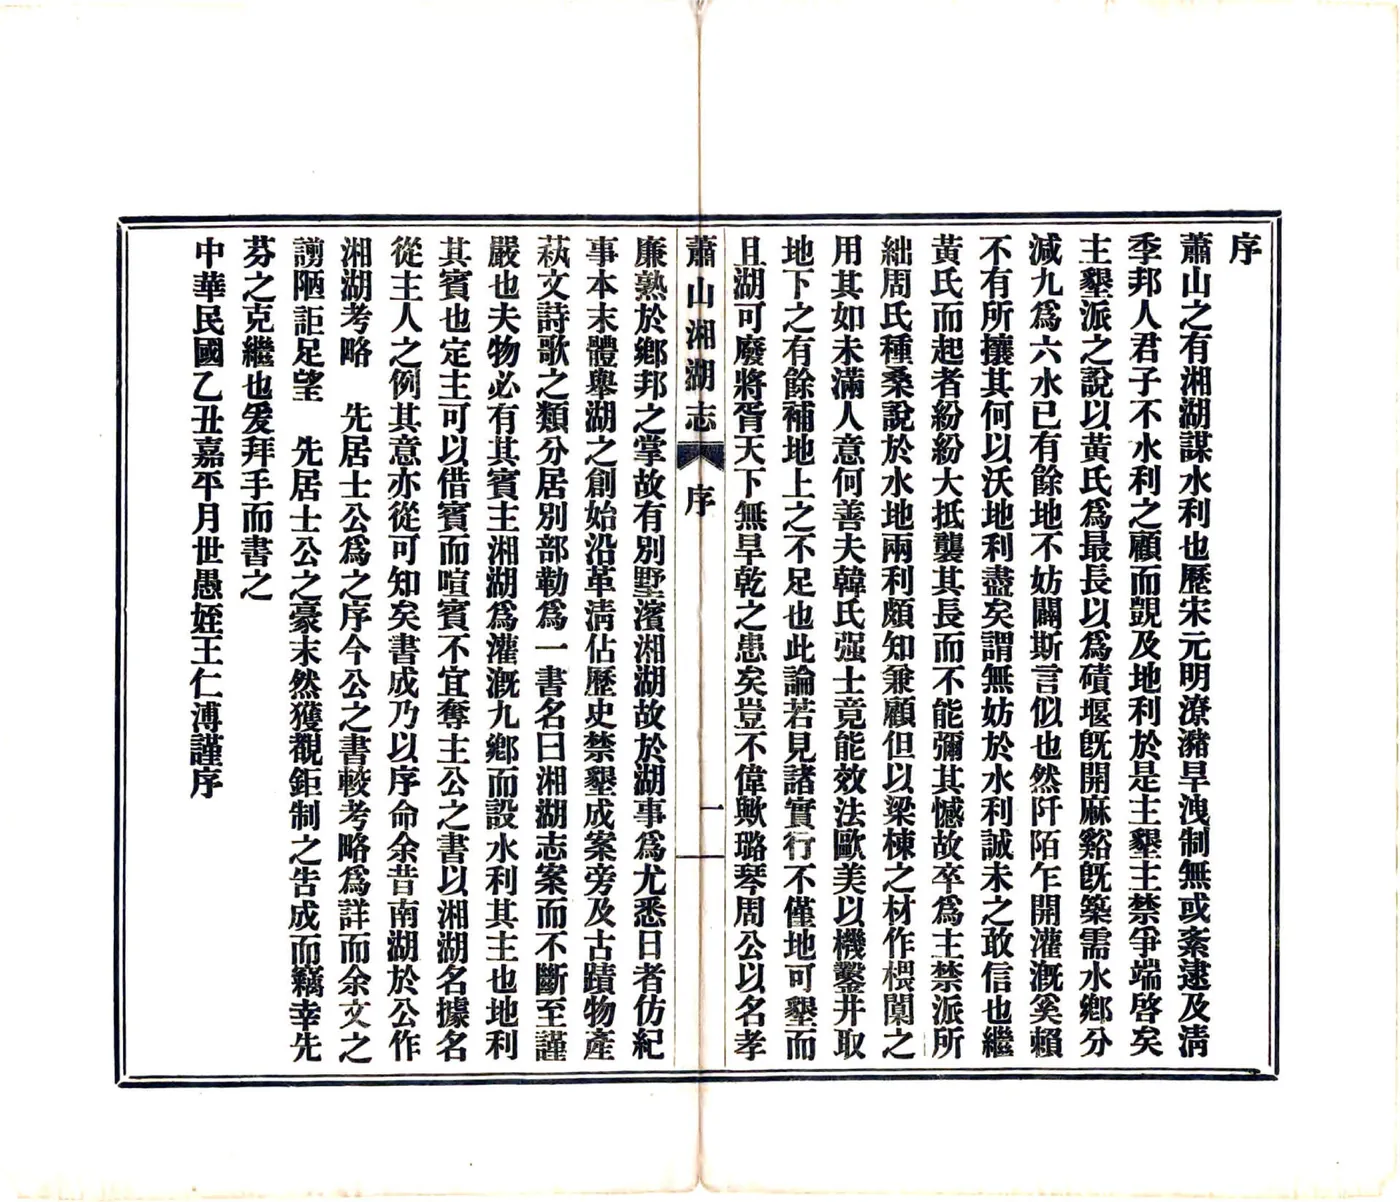 序
蕭山之有湘湖謀水利也歷宋元明潦瀦旱洩制無或紊逮及淸
季邦人君子不水利之顧而覬及地利於是主墾主禁爭端啓矣
主墾派之說以黃氏爲最長以爲磧堰旣開麻谿旣築需水鄉分
減九爲六水已有餘地不妨闢斯言似也然阡陌乍開灌漑奚賴
不有所攘其何以沃地利盡矣謂無妨於水利誠未之敢信也繼
黃氏而起者紛紛大抵襲其長而不能彌其憾故卒爲主禁派所
絀周氏種桑說於水地兩利頗知兼顧但以梁棟之材作椳闑之
用其如未滿人意何善夫韓氏强士竟能效法歐美以機鑿井取
地下之有餘補地上之不足也此論若見諸實行不僅地可墾而
且湖可廢將胥天下無旱乾之患矣豈不偉歟璐琴周公以名孝
蕭山湘湖志 序 一
廉熟於鄉邦之掌故有別墅濱湘湖故於湖事爲尤悉日者仿紀
事本末體舉湖之創始沿革淸佔歷史禁墾成案旁及古蹟物產
萟文詩歌之類分居別部勒爲一書名曰湘湖志案而不斷至謹
嚴也夫物必有其賓主湘湖爲灌漑九鄉而設水利其主也地利
其賓也定主可以借賓而喧賓不宜奪主公之書以湘湖名據名
從主人之例其意亦從可知矣書成乃以序命余昔南湖於公作
湘湖考略 先居士公爲之序今公之書較考略爲詳而余文之
謭陋詎足望 先居士公之豪末然獲觀鉅制之告成而竊幸先
芬之克繼也爰拜手而書之
中華民國乙丑嘉平月世愚姪王仁溥謹序